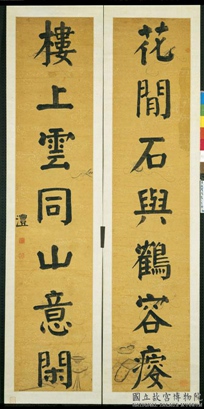 花間石與鶴容瘦
樓上雲同山意閑
澧
國立故宮博物院